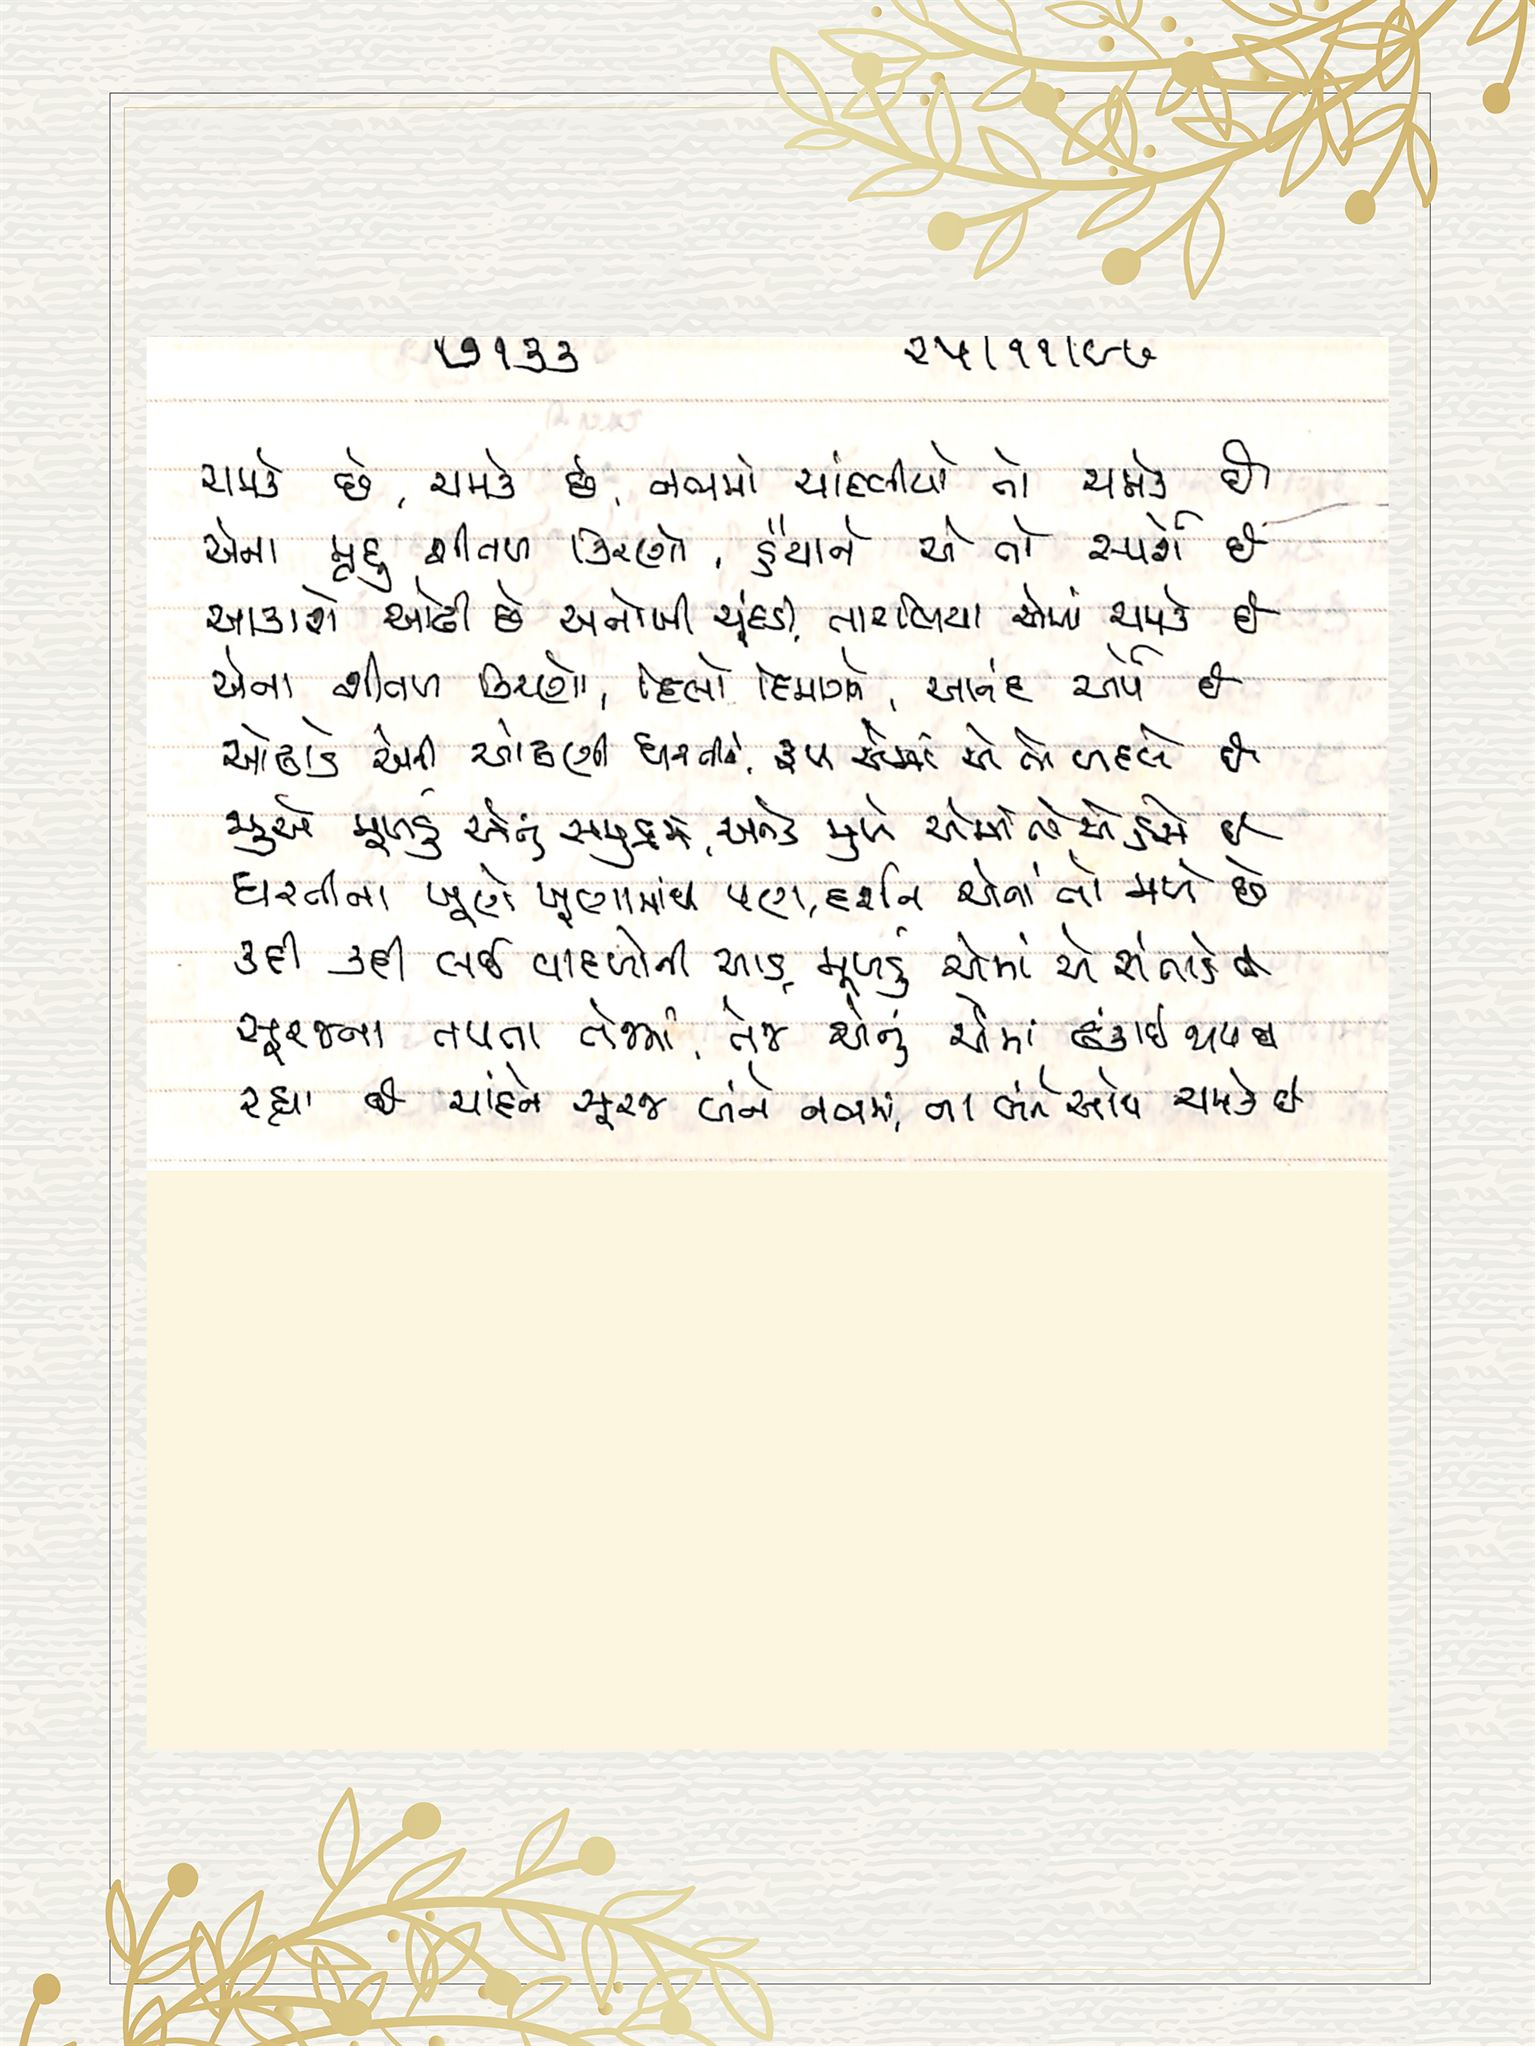 ૭૧૩૩ ૨૫/૧૧/૯૭
ચમકે છે, ચમકે છે, નભમાં ચાંદલીયો તો ચમકે છે
એના મૃદુ શીતળ કિરણો, હૈયાને એ તો સ્પર્શે છે
આકાશે ઓઢી છે અનોખી ચૂંદડી, તારલિયા એમાં ચમકે છે
એના શીતળ કિરણો, દિલો દિમાગને, આનંદ અર્પે છે
ઓઢાડે એની ઓઢણી ધરતીને, રૂપ એમાં એ તો બદલે છે
જુએ મુખડું એનું સમુદ્રમાં, અનેક મુખે એમાં તો એ હસે છે
ધરતીના ખૂણે ખૂણામાંથી પણ, દર્શન એનાં તો મળે છે
કદી કદી લઈ વાદળોની આડ, મુખડું એમાં એ સંતાડે છે
સૂરજના તપતા તેજમાં, તેજ એનું એમાં ઢંકાઈ જાય છે
રહ્યા છે ચાંદને સૂરજ બંને નભમાં, ના બંને સાથે ચમકે છે